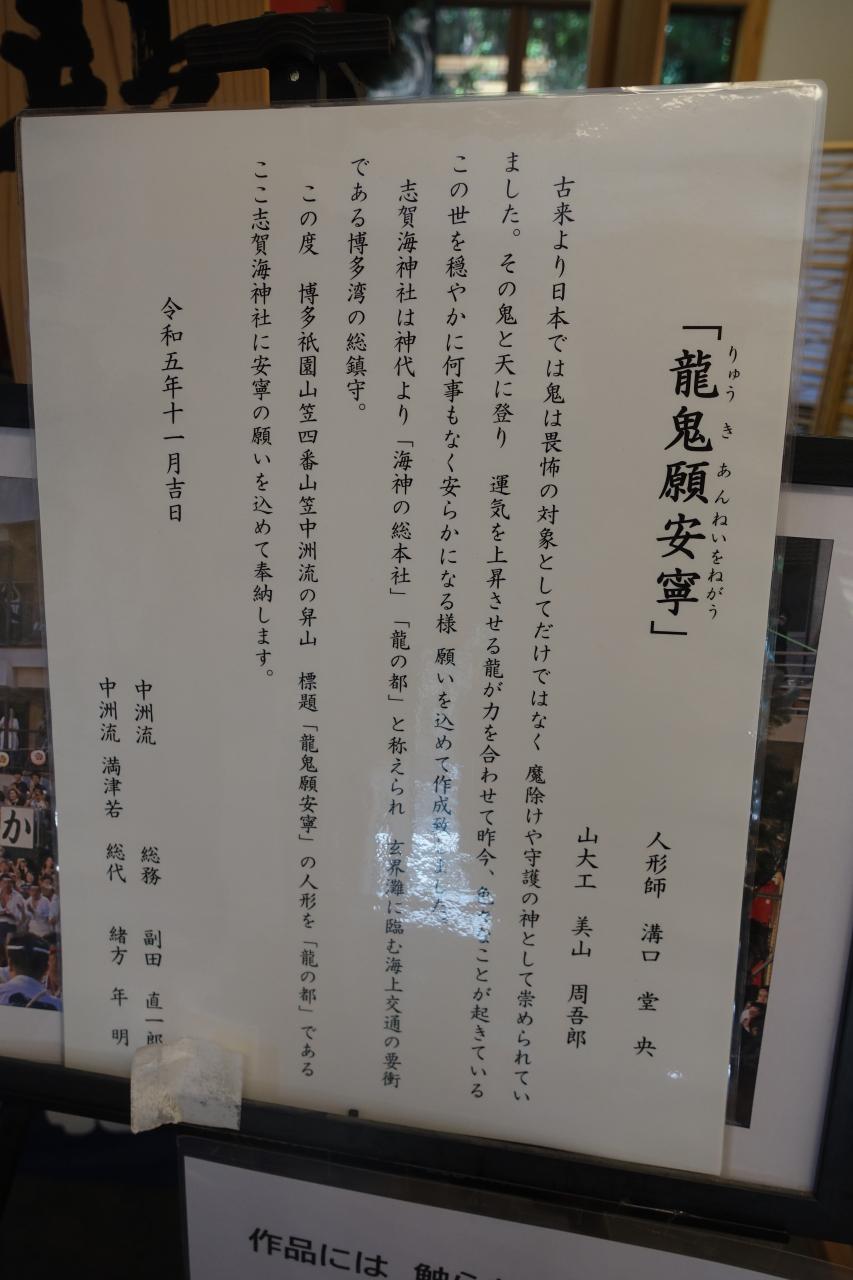 「龍鬼願安寧」
りゅう き あんねいをねがう
人形師 溝口 堂央
山大工 美山 周吾郎
古来より日本では鬼は畏怖の対象としてだけではなく 魔除けや守護の神として崇められてい
ました。その鬼と天に登り 運気を上昇させる龍が力を合わせて昨今、色々なことが起きている
この世を穏やかに何事もなく安らかになる様 願いを込めて作成致しました。
志賀海神社は神代より「海神の総本社」「龍の都」と称えられ 玄界灘に臨む海上交通の要衝
である博多湾の総鎮守。
この度 博多祇園山笠四番山笠中洲流の舁山 標題「龍鬼願安寧」の人形を「龍の都」である
ここ志賀海神社に安寧の願いを込めて奉納します。
令和五年十一月吉日
中洲流 総務 副田 直一郎
中洲流 満津若 総代 緒方 年明
か
作品には 触ら